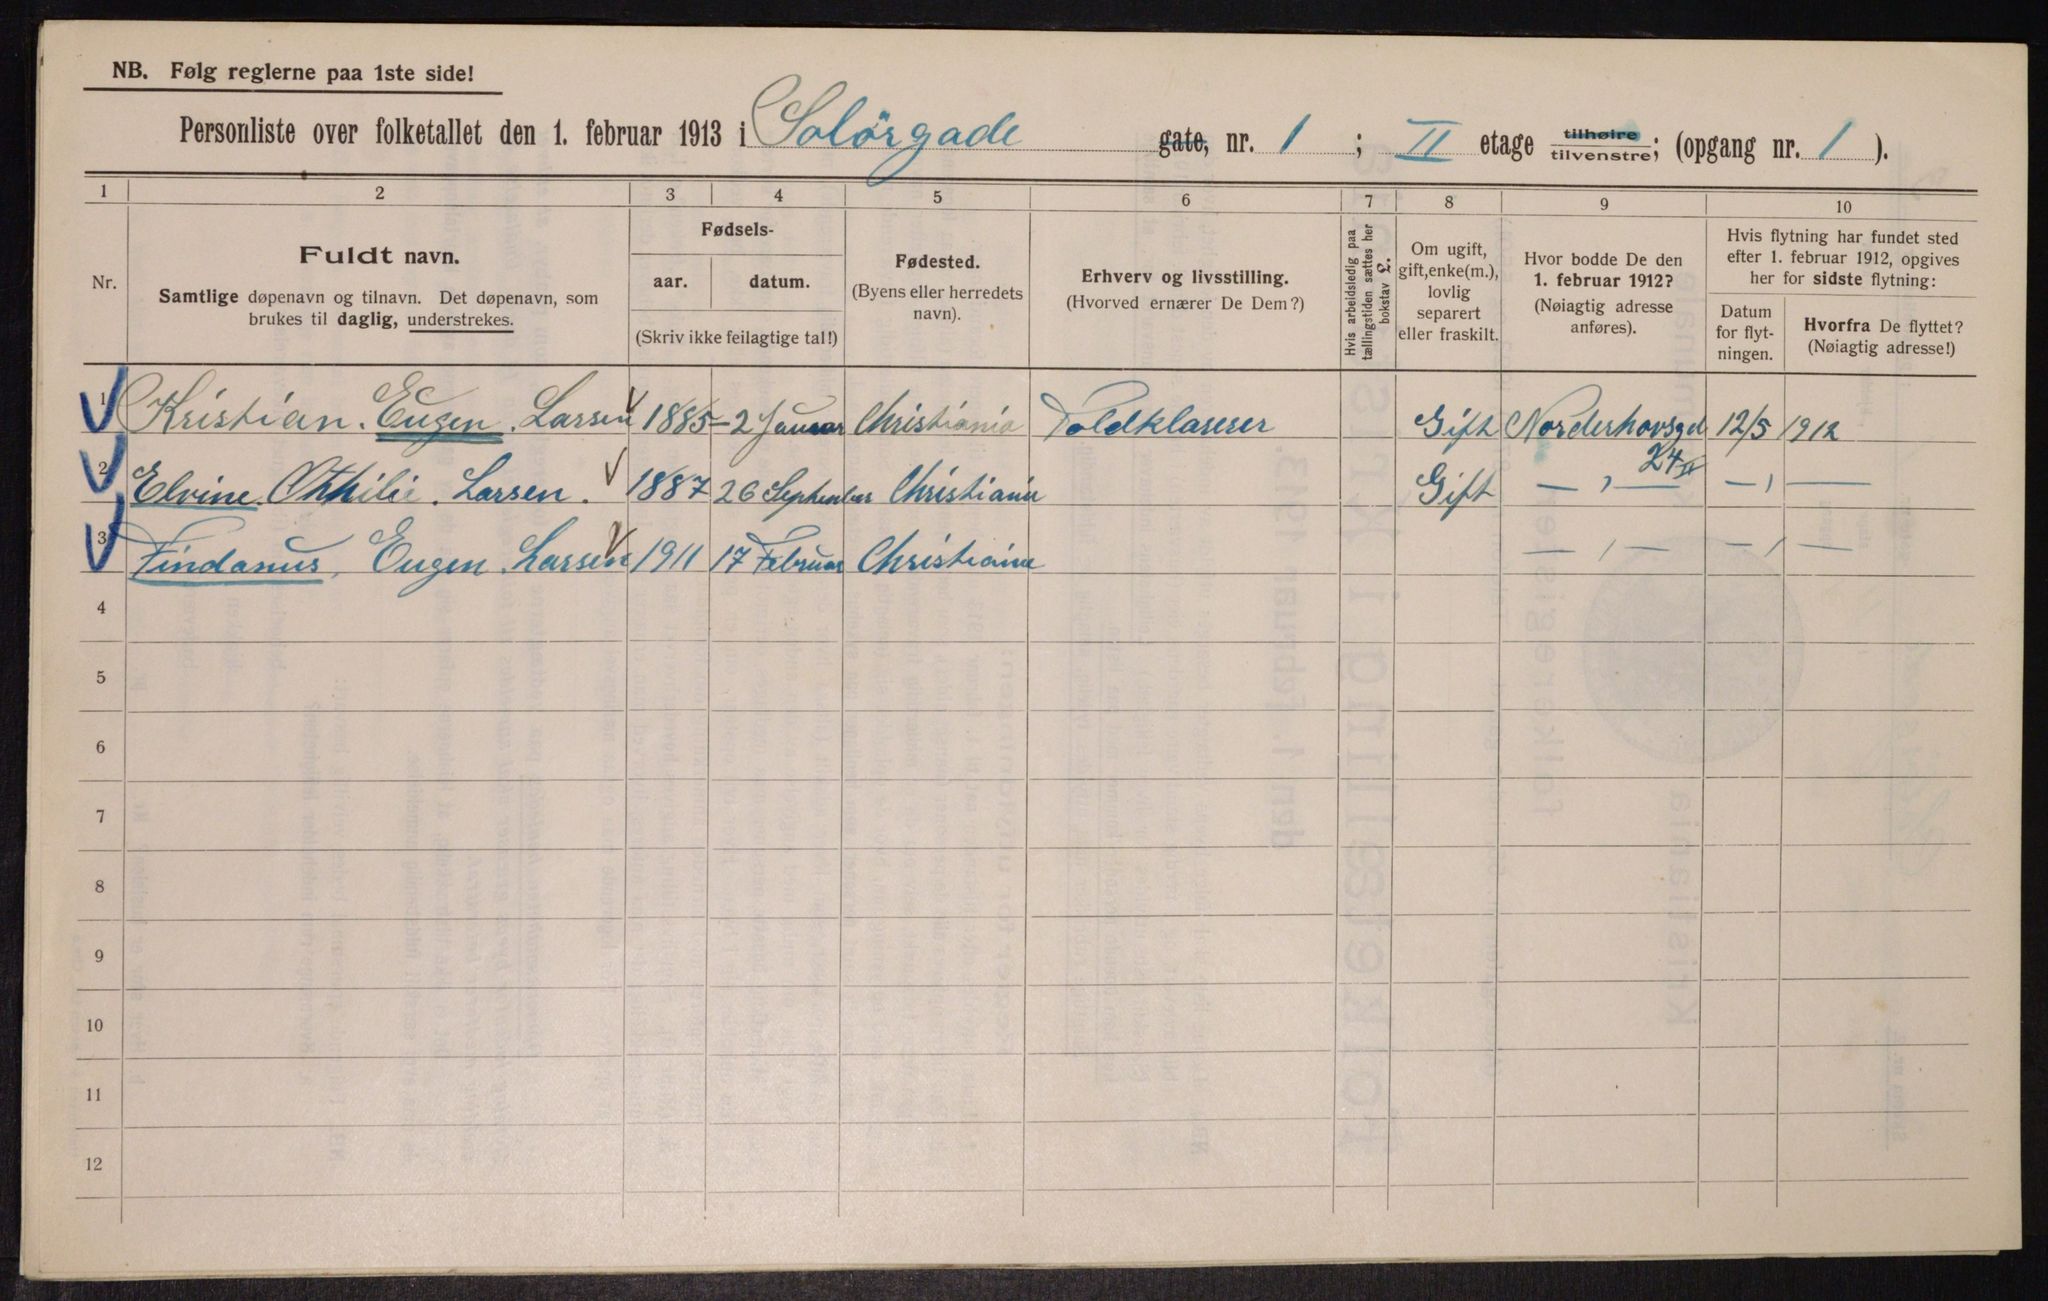 NB. Følg reglerne paa 1ste side!
Personliste over folketallet den 1. februar 1913 i Solørgade gate, nr. 1 ; II etage tilhøire tilvenstre; (opgang nr. 1 ).
1 2 3 4 5 6 7 8 9 10
Nr.
Fuldt navn.
Samtlige døpenavn og tilnavn. Det døpenavn, som
brukes til daglig, understrekes.
Fødsels-
aar. datum.
(Skriv ikke feilagtige tal!)
Fødested.
(Byens eller herredets
navn).
Erhverv og livsstilling.
(Hvorved ernærer De Dem?)
Hvis arbeidsledig paa
tællingstiden sættes her
bokstav L.
Om ugift,
gift, enke(m.),
lovlig
separert
eller fraskilt.
Hvor bodde De den
1. februar 1912?
(Nøiagtig adresse
anføres).
Hvis flytning har fundet sted
efter 1. februar 1912, opgives
her for sidste flytning:
Datum
for flyt-
ningen.
Hvorfra De flyttet?
(Nøiagtig adresse!)
1 Kristian. Eugen. Larsen 1885 – 2 Januar Christiania Toldklaserer Gift Norderhovsgd 12/5 1912
24 II
2 Elvine. Othilie. Larsen. 1887 26 September Christiania Gift — , — — , —
3 Findanus, Eugen. Larsen 1911 17 Februar Christiania — , — — , —
4
5
6
7
8
9
10
11
12